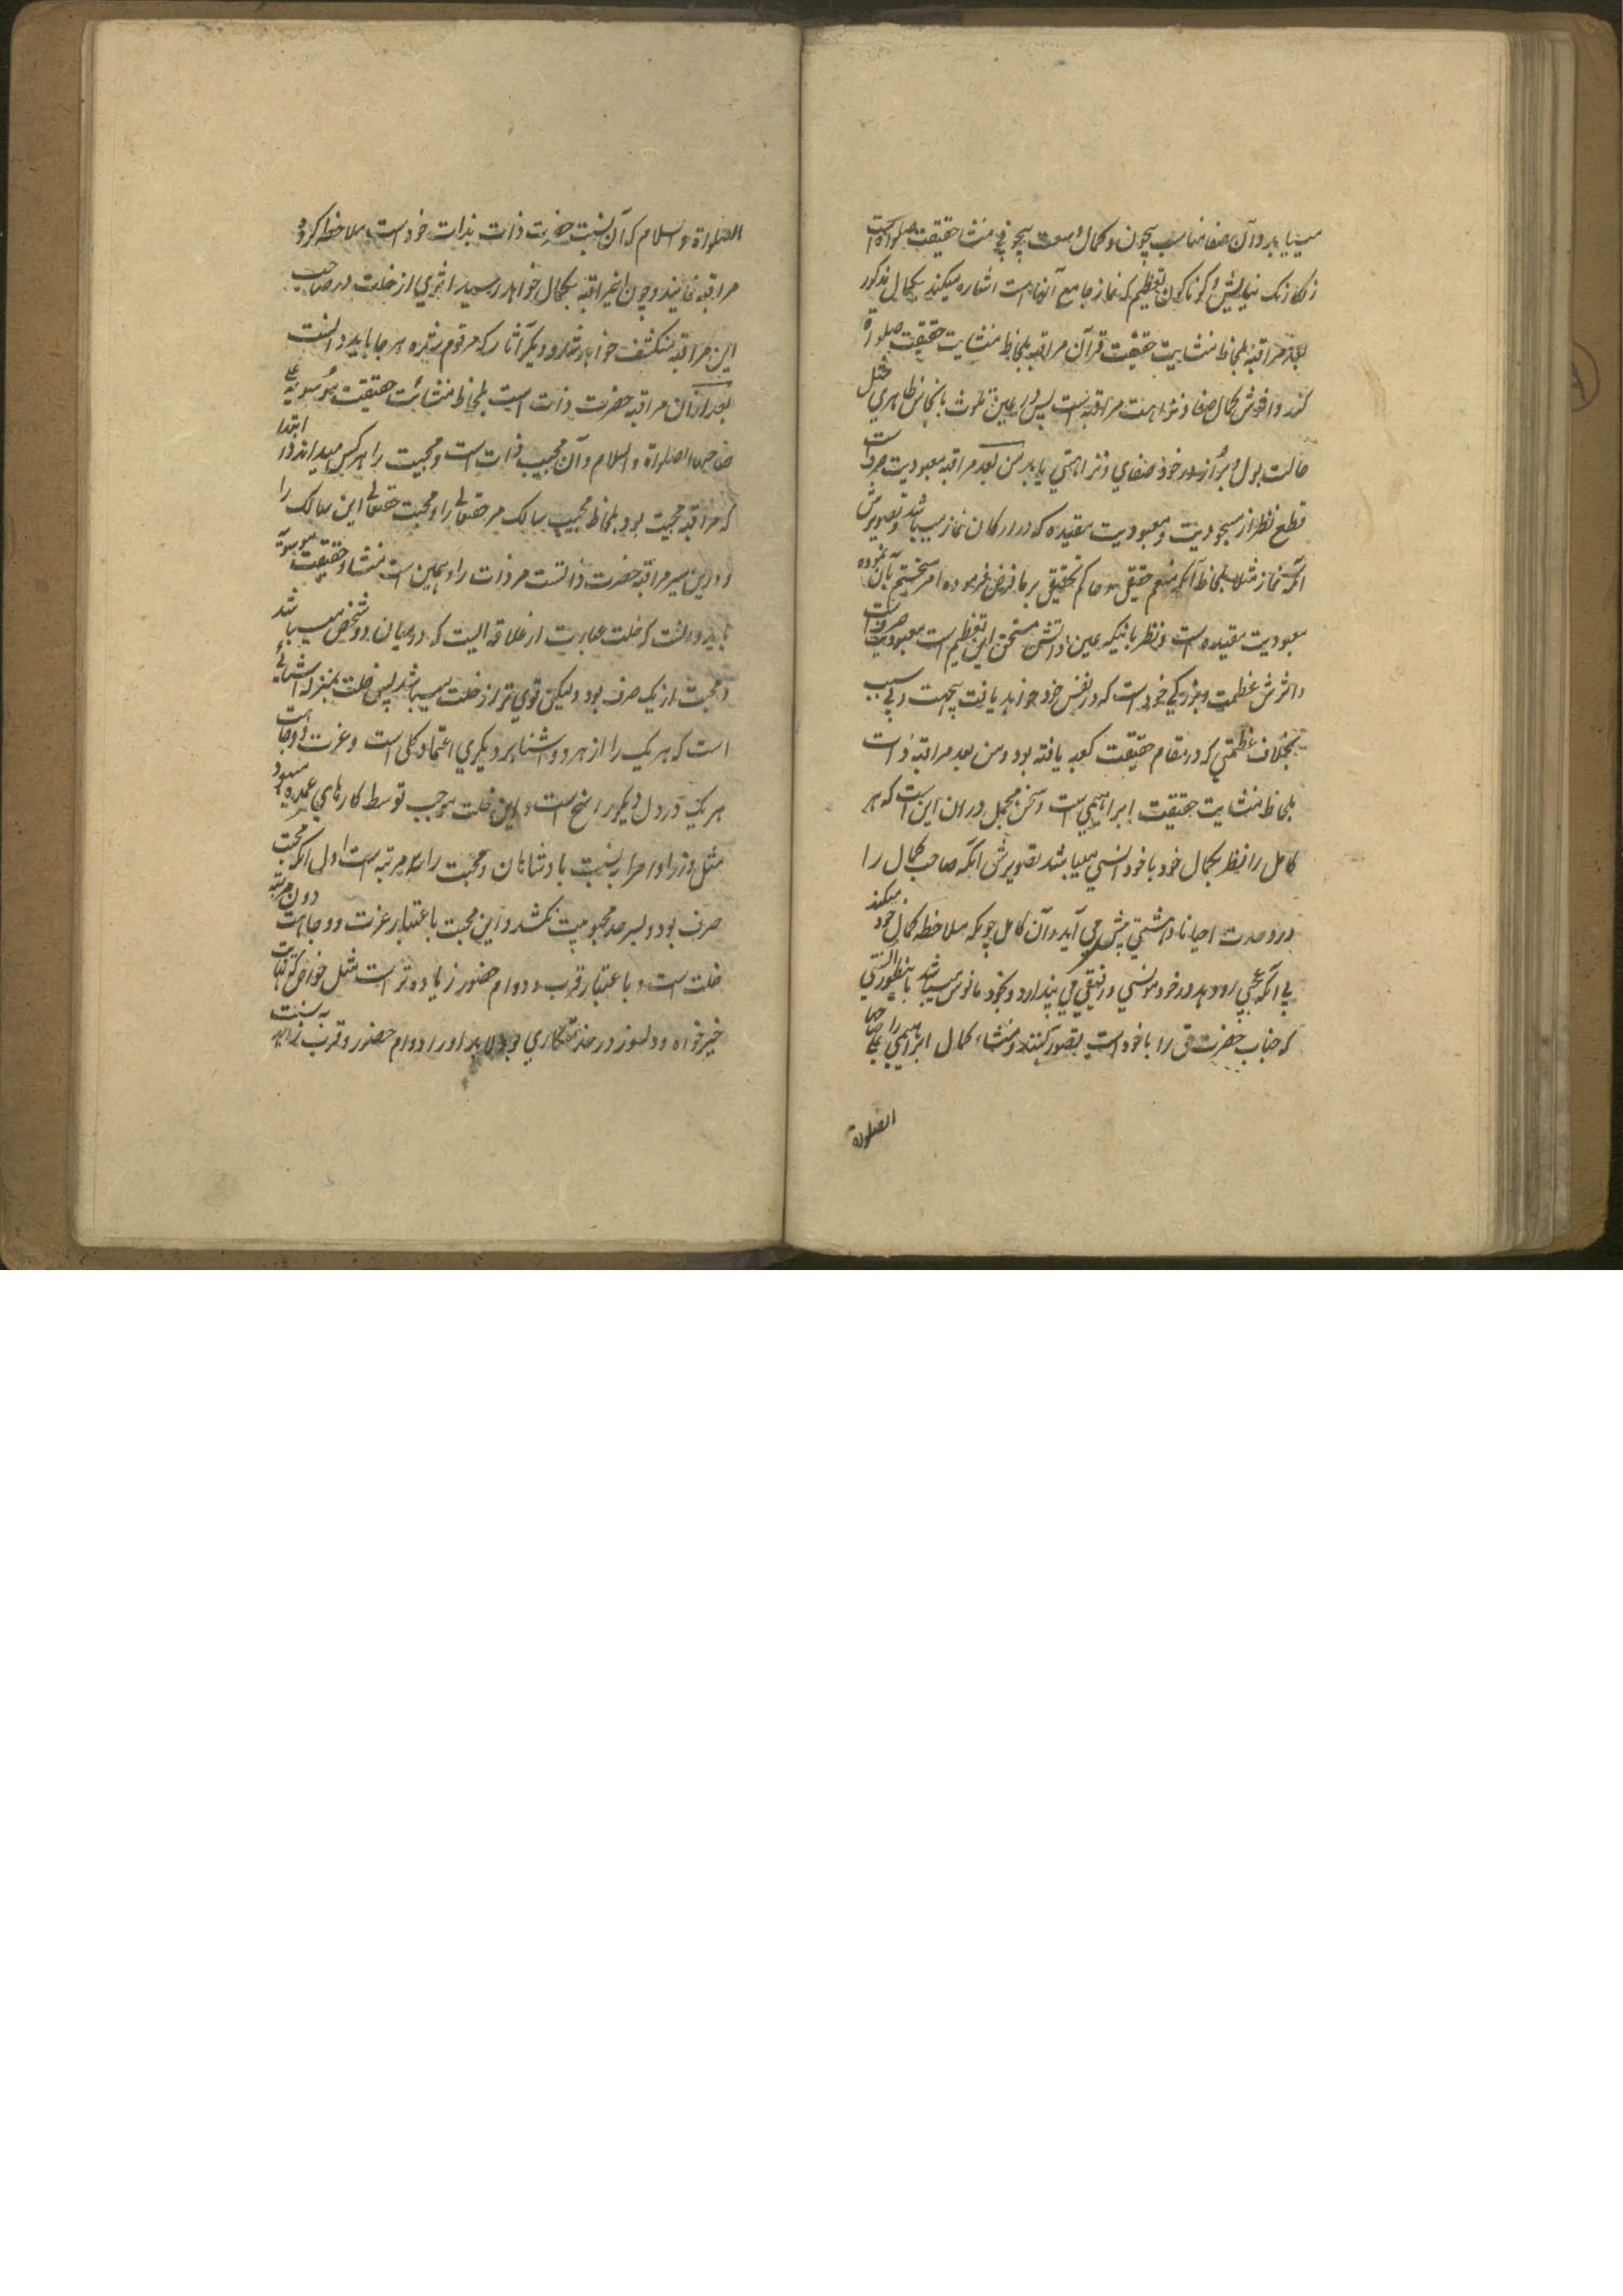 مییابد و آن صفا مناسب بیچون و کمال وسعت بیچونی منشا حقیقت صلواة است
رنگارنگ نیایش و گوناگون تعظیم که نماز جامع آنهاست اشاره میکند بکمال مذکور
بعد مراقبه بلحاظ منشایت حقیقت قرآن مراقبه بلحاظ منشایت حقیقت صلواة
کند و اثرش کمال صفا و نزاهت مراقبه است پس در عین تلوث بانجاس ظاهری مثل
حالت بول و براز در خود صفای و نزاهتی یابد من بعد مراقبه معبودیت صرف است
قطع نظر از مسجودیت و معبودیت مقیده که در ارکان نماز میباشد و تصویرش
آنکه نماز مثلا بلحاظ آنکه منعم حقیقی و حاکم تحقیقی بر ما فرض فرموده امر بآن نموده
معبودیت مقیده است و نظر بآنکه عین ذاتش مستحق این تعظیم است معبودیت صرف است
و اثرش عظمت و بزرگی خود است که در نفس خود خواهد یافت بیجهت و بی سبب
بخلاف عظمتی که در مقام حقیقت کعبه یافته بود و من بعد مراقبه ذات
بلحاظ منشایت حقیقت ابراهیمی است و سخن مجمل در ان این است که هر
کامل را نظر بکمال خود با خود انسی میباشد تصویرش آنکه صاحب کمال را
در وحدت احیانا وحشتی پیش می آید و آن کامل چونکه ملاحظه کمال خود میکند
بی آنکه عجبی رو دهد در خود مونسی و رفیقی می پندارد و بخود مانوس میباشد باینطور انسی
که جناب حضرت حق را با خود است تصور کنند و منشاء کمال ابراهیمی را علی صاحبها
الصلوة
الصلواة والسلام که آن نسبت حضرت ذات بذات خود است ملاحظه کرده
مراقبه نمایند و چون این مراقبه بکمال خواهد رسید اثری از خلت در صاحب
این مراقبه منکشف خواهد شد و دیگر آثار که مرقوم شده هر جا باید دانست
بعد از ان مراقبه حضرت ذات است بلحاظ منشائت حقیقت موسویه علی
صاحبها الصلواة والسلام و آن محبیت ذات است و محبیت را هر کس میداند در ابتدا
که مراقبه محبت بود بلحاظ محبیت سالک مر حقتعالی را و محبت حقتعالی این سالک را
و درین سیر مراقبه حضرت ذاتست مر ذات را و همین است منشاء حقیقت موسویه
باید دانست که خلت عبارت از علاقه ایست که درمیان دو شخص میباشد
و محبت از یک صرف بود و لیکن قوی تر از خلت میباشد پس خلت بمنزله آشنائی
است که هر یک را از هر دو آشنا بر دیگری اعتماد کلی است و عزت و وجاهت
هر یک در دل دیگر راسخ است و این خلت موجب توسط کارهای عمده میشود
مثل وزرا و امرا به نسبت بادشاهان و محبت را سه مرتبه است اول آنکه محبت
صرف بود و بسر حد محبوبیت نکشد و این محبت باعتبار عزت و وجاهت دون مرتبه
خلت است و باعتبار قرب و دوام حضور زیاده تر است مثل خواص
خیرخواه و دلسوز در خدمتگاری بود لابد او را دوام حضور و قرب به نسبت